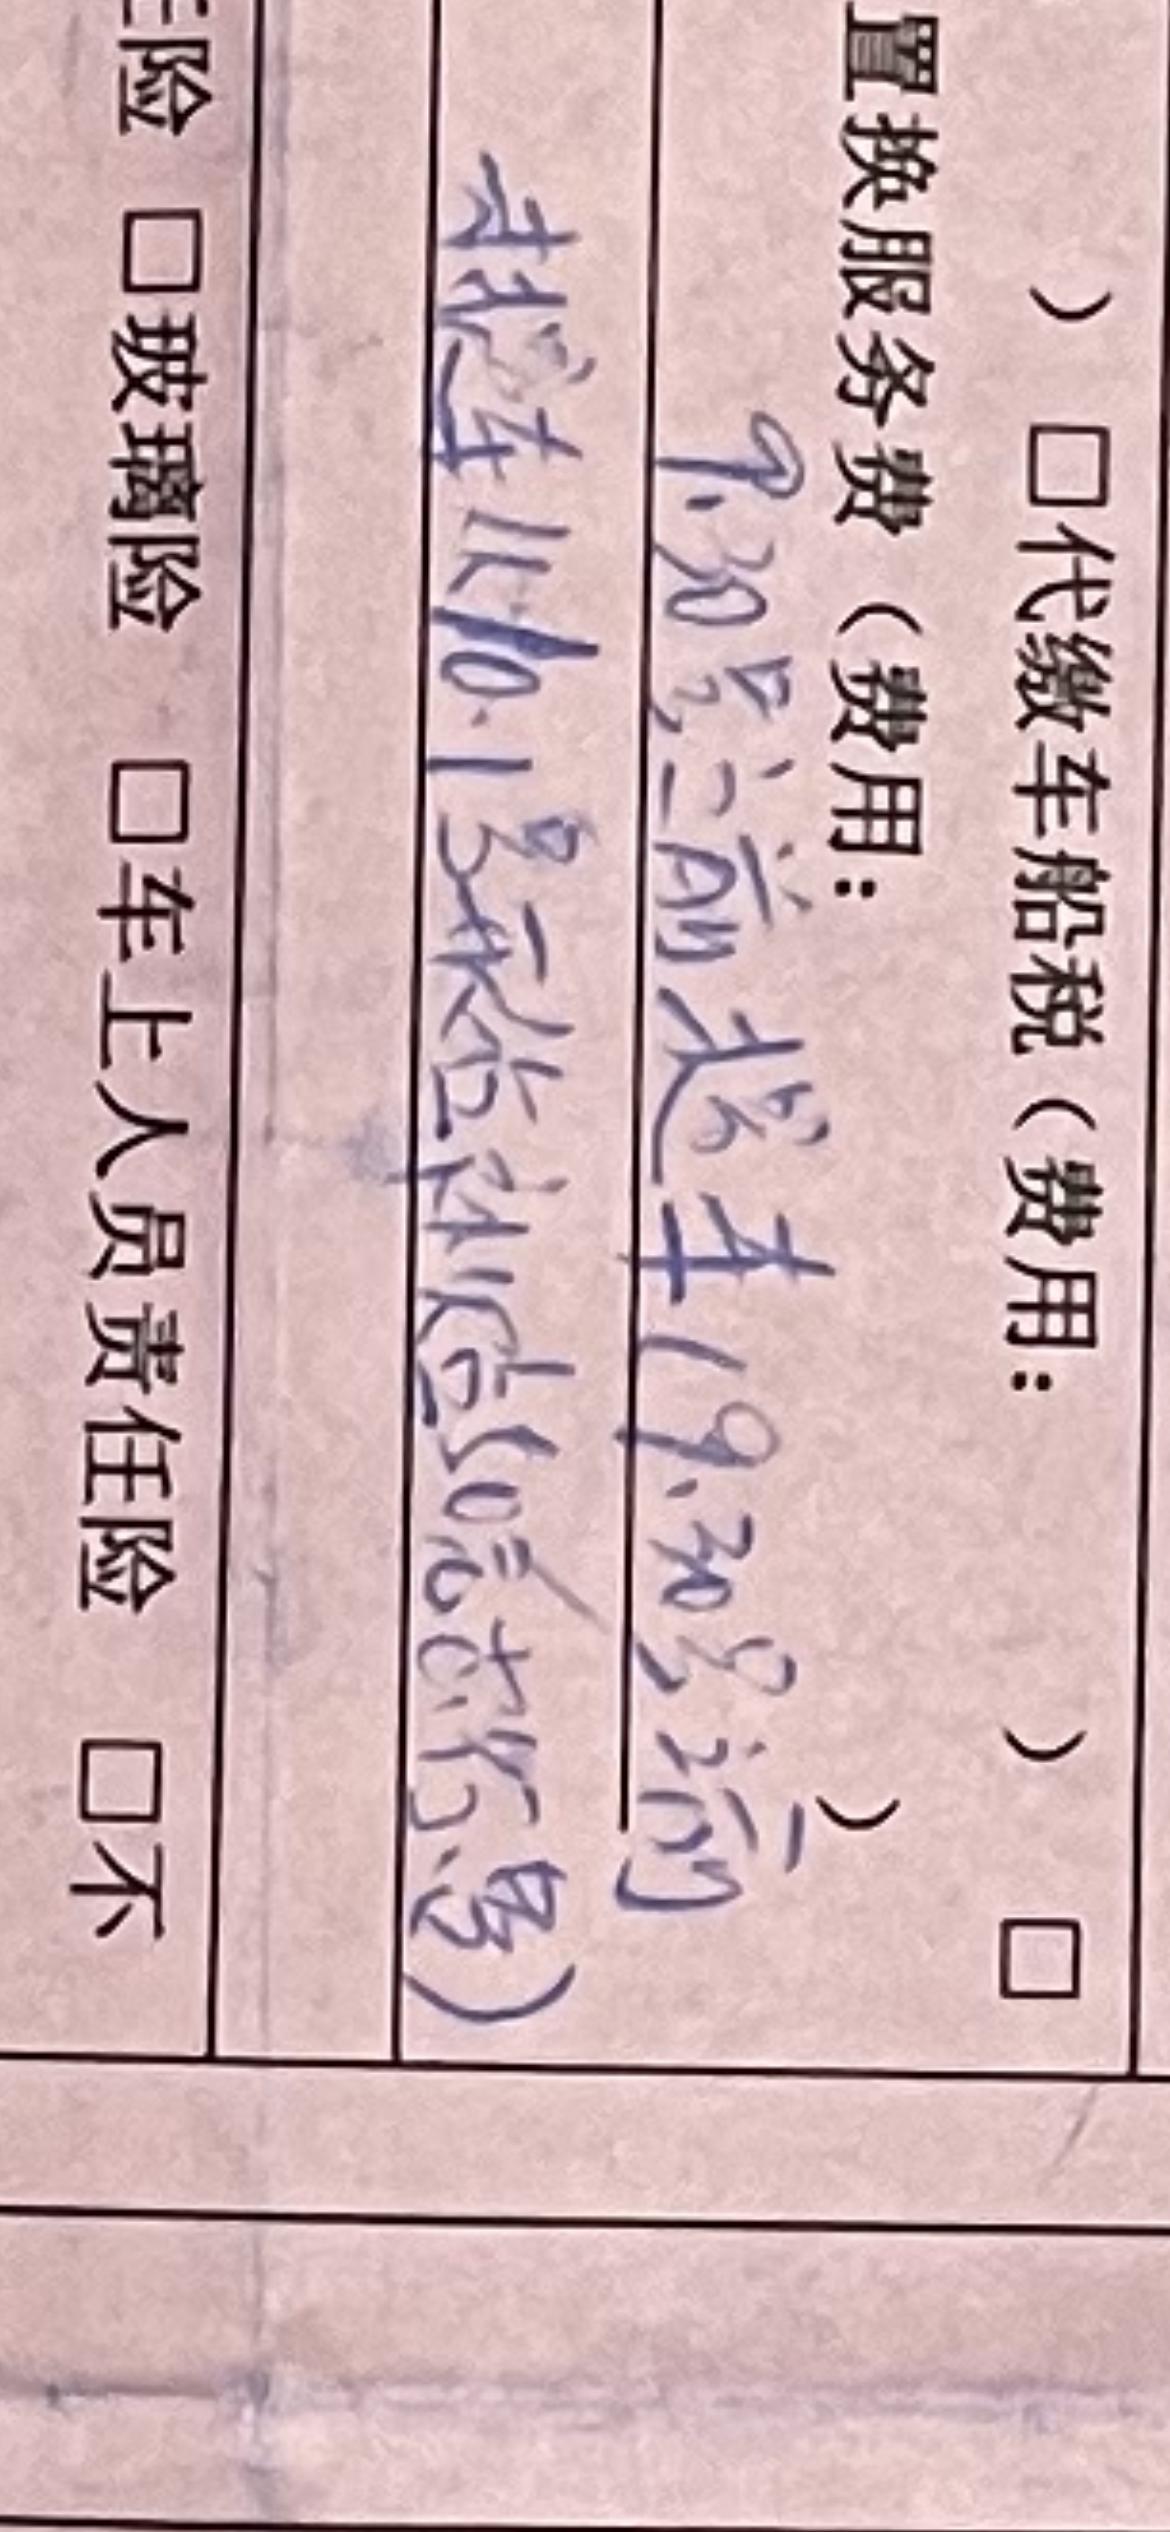 ） □代缴车船税（费用： ） □
置换服务费（费用： ）
9.30号之前提车（9.30号前
未提车从10.1号 50元 ）
险 □玻璃险 □车上人员责任险 □不